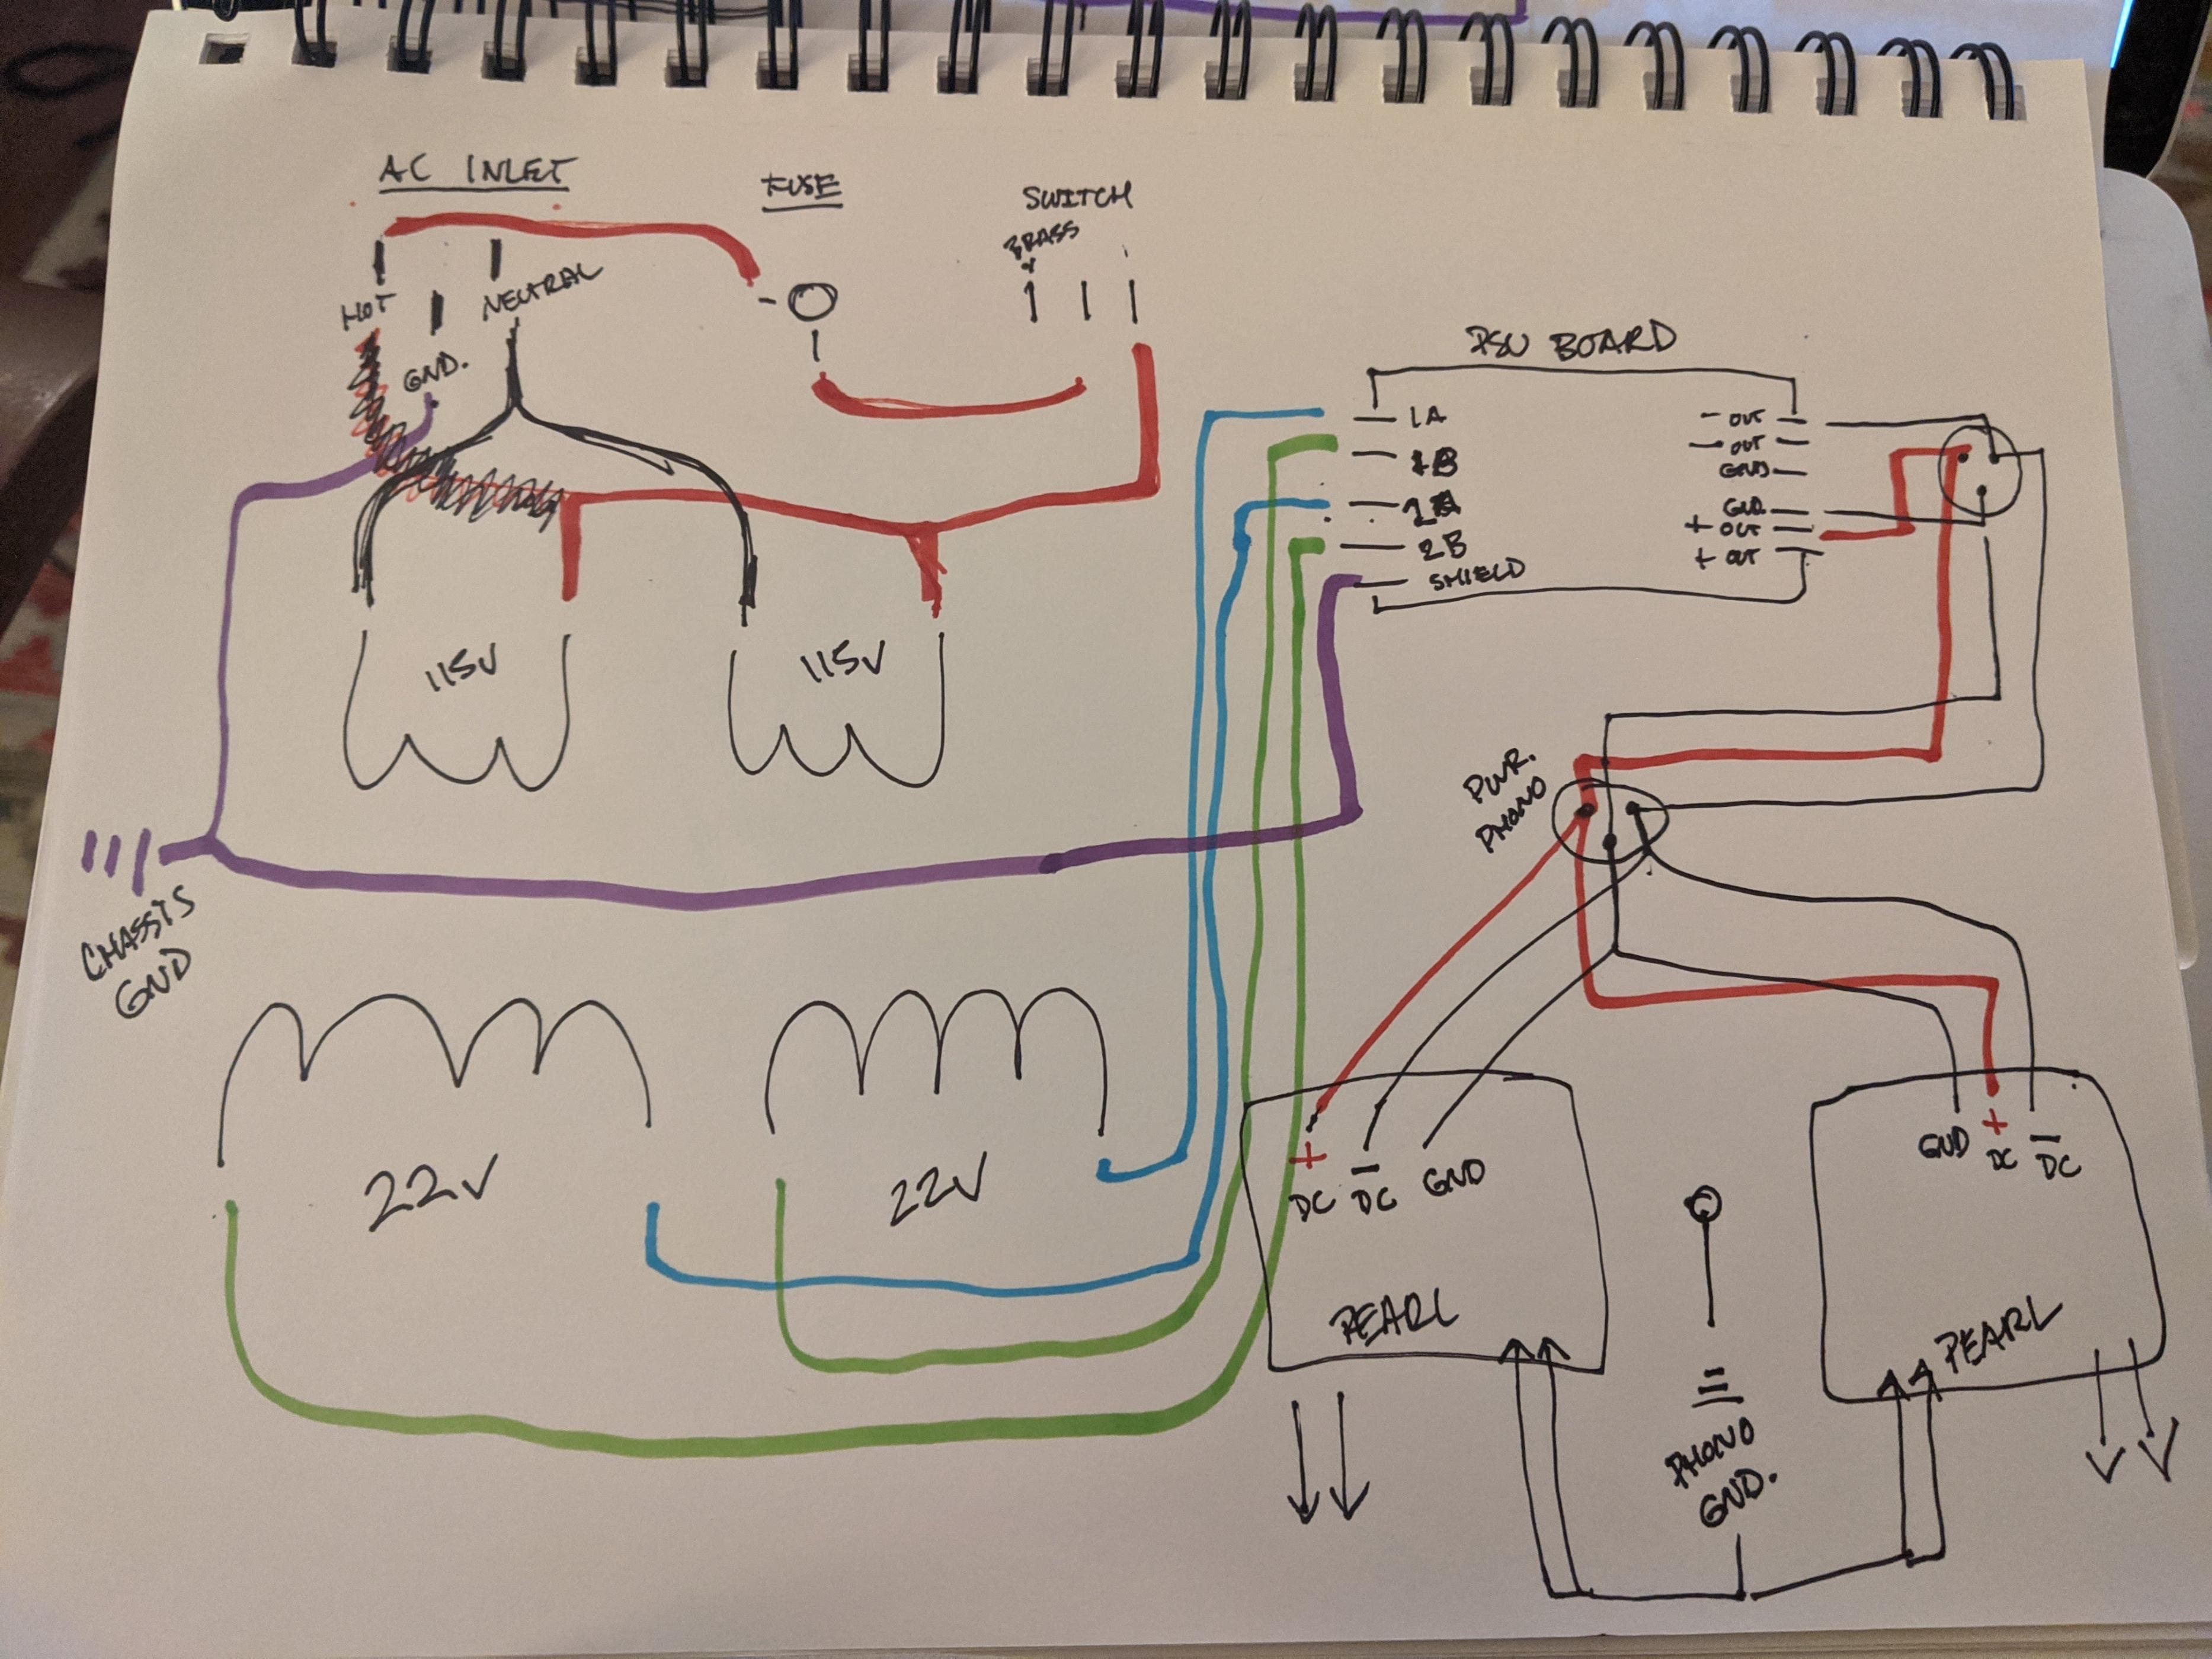 AC INLET
FUSE
SWITCH
BRASS
HOT
NEUTRAL
GND.
PSU BOARD
1A
1B
2A
2B
SHIELD
- OUT
- OUT
GND
GND
+ OUT
+ OUT
115V
115V
PWR.
PHONO
CHASSIS
GND
22V
22V
+ -
DC DC GND
PEARL
GND + -
DC DC
PEARL
PHONO
GND.